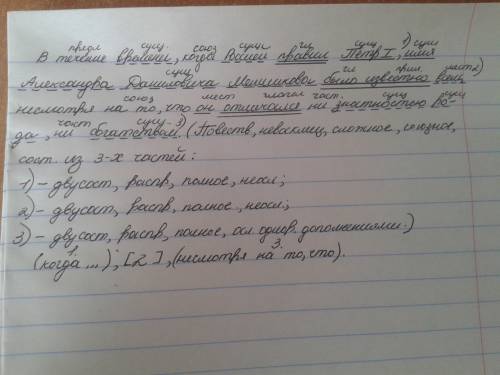 предл сущ союз сущ гл сущ 1) сущ
В течение времени, когда Россией правил Пётр I, имя
сущ гл прил мест 2)
Александра Даниловича Меншикова было известно всем,
союз мест глагол част. сущ сущ
несмотря на то, что он отличался ни знатностью ро-
част сущ - 3)
да, ни богатством. (Повеств, невосклиц, сложное, союзное,
сост. из 3-х частей:
1) - двусост, распр, полное, неосл;
2) - двусост, распр, полное, неосл;
3) - двусост, распр, полное, осл. однор. дополнениями.)
(когда 1. ...), [2], (несмотря на 3. то, что).